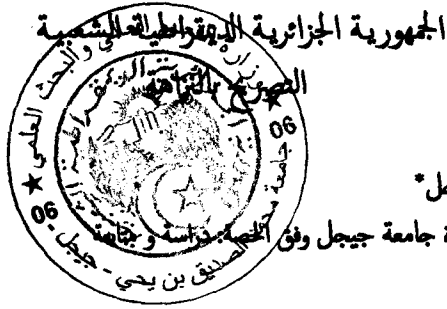 الجمهورية الجزائرية الديمقراطية الشعبية
التصريح بالنزاهة
مل*
ة جامعة جيجل وفق الخصة: دراسة و
والبحث العلمي
جامعة محمد الصديق بن يحي - جيجل - 06
06